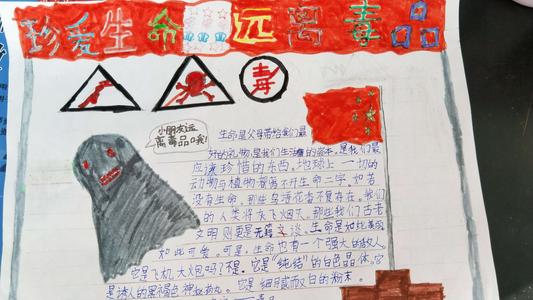 珍爱生命 远离毒品
毒
小朋友远
离毒品哦!
生命是父母带给我们最
好的礼物,是我们生活的资本,是我们最
应该珍惜的东西。地球上一切的
动物与植物都离不开生命二字。如若
没有生命,那些鸟语花香不复存在。我们
的人类将灰飞烟灭。那些我们古老
文明则更是无从谈。生命是如此美丽
如此可爱。可是,生命也有一个强大的敌人。
它是飞机大炮吗?不是。它是“纯结”的白色晶体,它
是诱人的黑褐色神秘药丸。它是细腻而白的粉末。